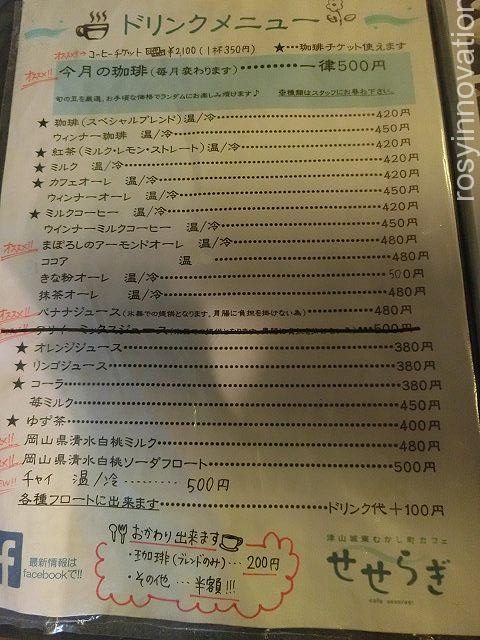 rosyinnovation
ドリンクメニュー
オススメ!! コーヒーチケット ¥2100(1杯350円) ★…珈琲チケット使えます
オススメ!! 今月の珈琲(毎月変わります)……一律500円
旬の豆を厳選。お手頃な価格でランダムにお楽しみ頂けます♪ ※種類はスタッフにお尋ね下さい。
★ 珈琲(スペシャルブレンド)温/冷……420円
ウィンナー珈琲 温/冷……450円
★ 紅茶(ミルク・レモン・ストレート)温/冷……420円
★ ミルク 温/冷……420円
★ カフェオーレ 温/冷……420円
ウィンナーオーレ 温/冷……450円
★ ミルクコーヒー 温/冷……420円
ウインナーミルクコーヒー 温/冷……450円
オススメ!! まぼろしのアーモンドオーレ 温/冷……480円
ココア 温……480円
きな粉オーレ 温/冷……500円
抹茶オーレ 温/冷……480円
オススメ!! バナナジュース(氷無での提供となります。胃腸に負担を掛けない為)……480円
ミックスジュース(氷無での提供となります。胃腸に負担を掛けない為)……500円
★ オレンジジュース……380円
★ リンゴジュース……380円
★ コーラ……380円
苺ミルク……450円
★ ゆず茶……400円
岡山県清水白桃ミルク……480円
岡山県清水白桃ソーダフロート……500円
チャイ 温/冷………500円
各種フロートに出来ます……ドリンク代+100円
おかわり出来ます
・珈琲(ブレンドのみ)…200円
・その他…半額!!!
f
最新情報は
facebookで!!
津山城東むかし町カフェ
せせらぎ
cafe seseragi